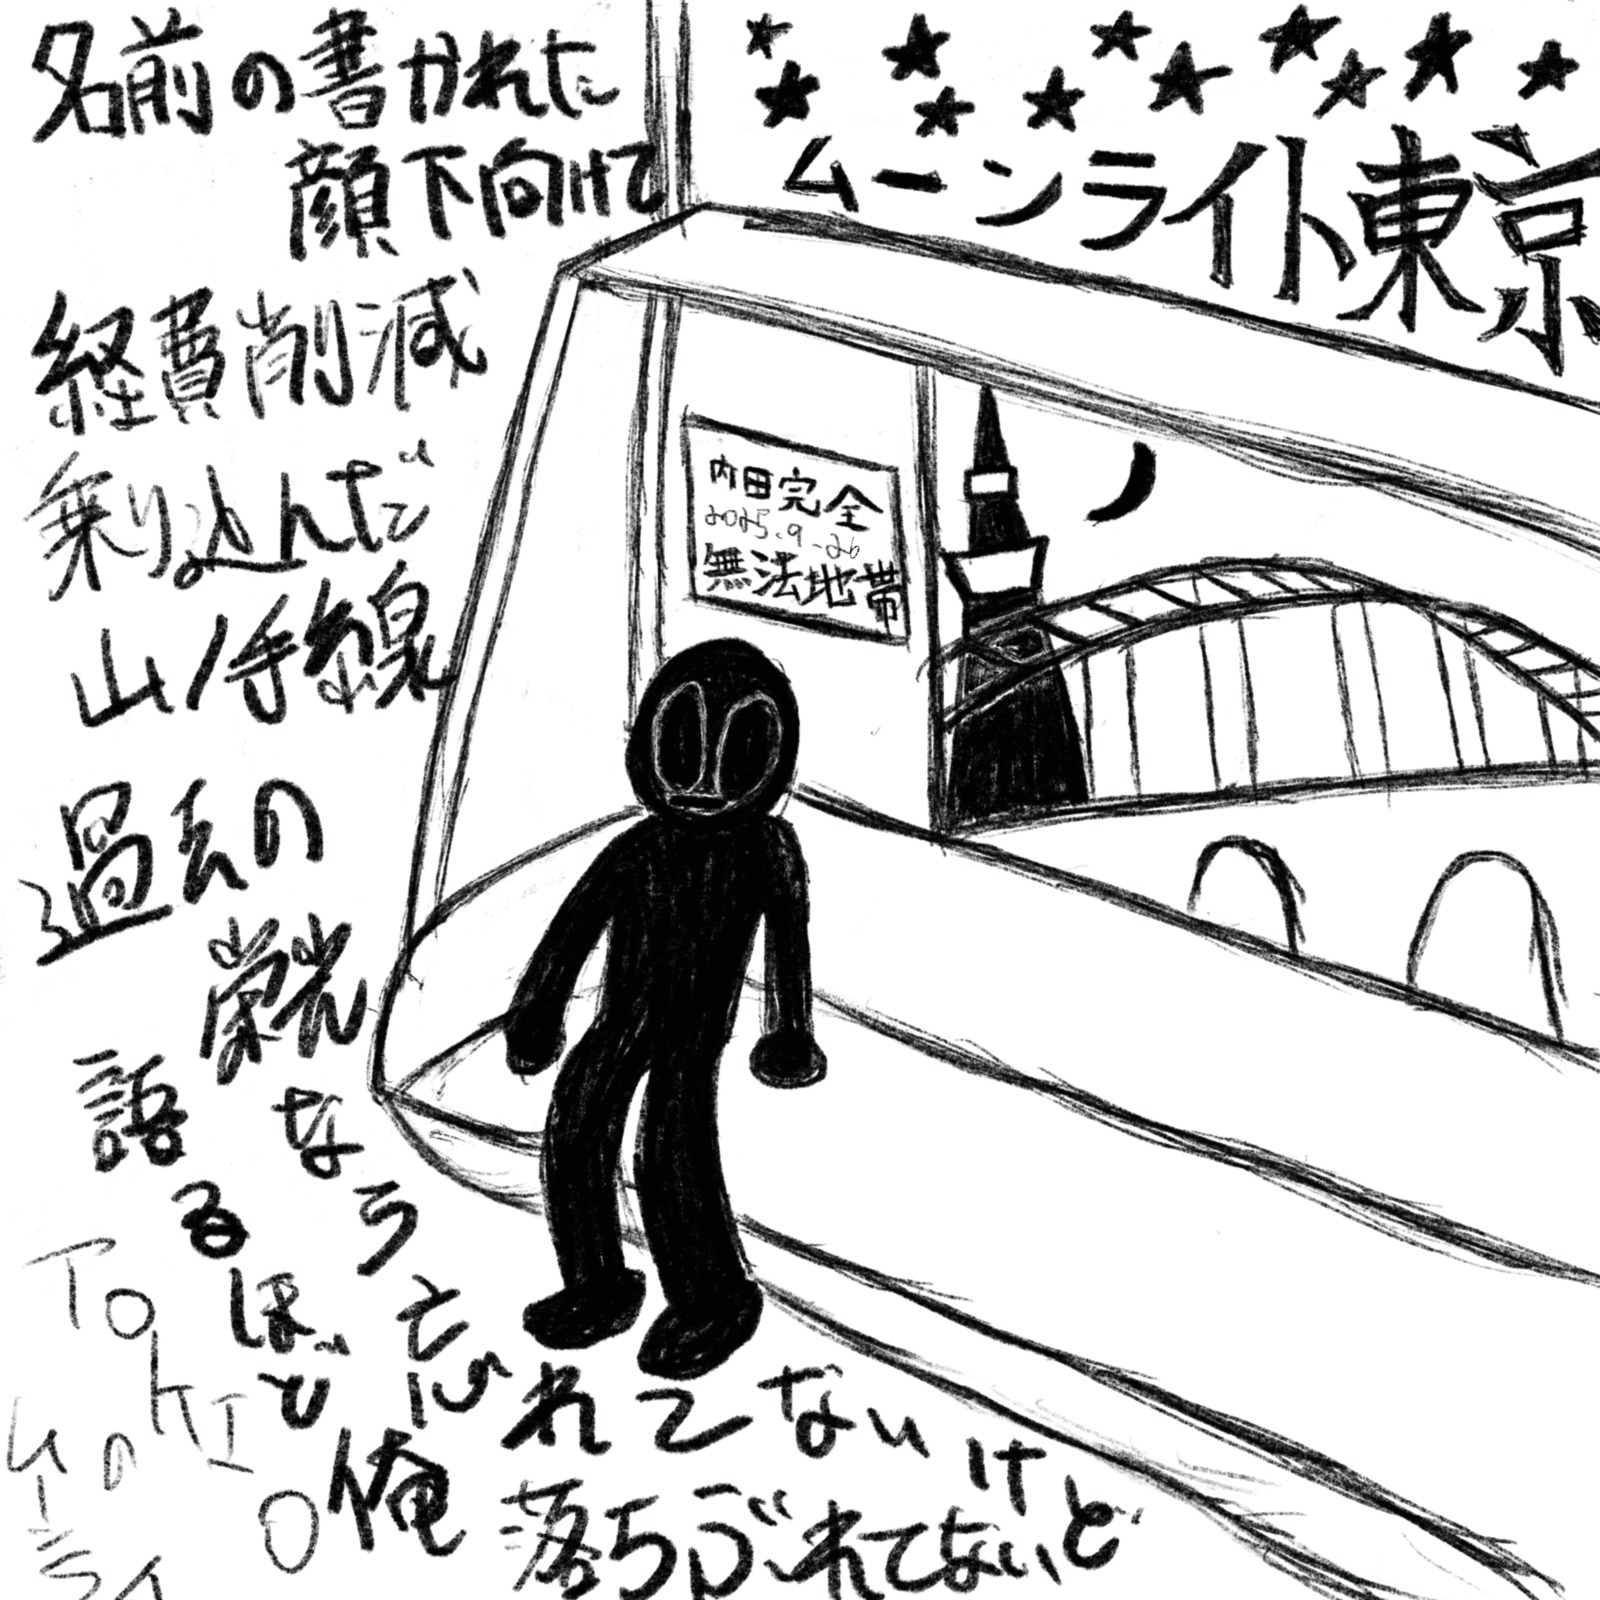 名前の書かれた
顔下向けて
経費削減
乗り込んだ
山ノ手線
過去の
栄光
なら忘れてないけど
語るほど俺
落ちぶれてないど
TOKIO
の
ムーライ
ムーンライト東京
内田完全
2025.9.26
無法地帯